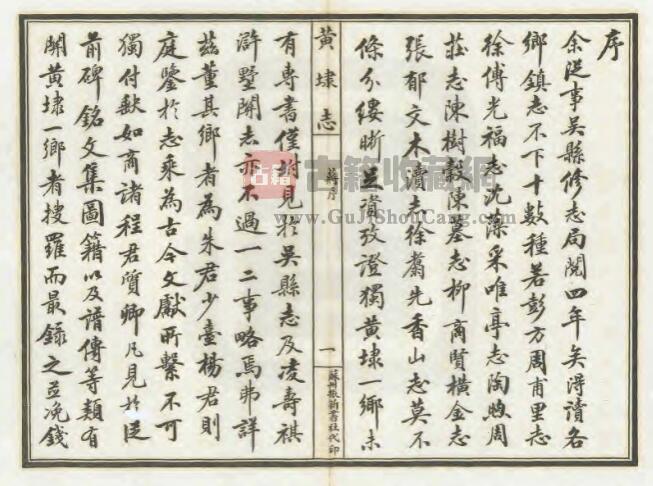 序
余從事吳縣修志局閱四年矣得讀各
鄉鎮志不下十數種若彭方周甫里志
徐傅光福志沈藻采唯亭志陶煦周
莊志陳樹穀陳墓志柳商賢橫金志
張郁文木瀆志徐翥先香山志莫不
條分縷晰並資攷證獨黄埭一鄉未
黄埭志
蔣序
一
蘇州振新書社代印
有專書僅附見於吳縣志及凌壽祺
滸墅關志亦不過一二事略焉弗詳
茲董其鄉者為朱君少臺楊君則
庭鑒於志乘為古今文獻所繫不可
獨付缺如商諸程君質卿凡見於從
前碑銘文集圖籍以及譜傳等類有
關黄埭一鄉者搜羅而最録之並浼錢
古籍
古籍收藏網
www.GuJiShouCang.com